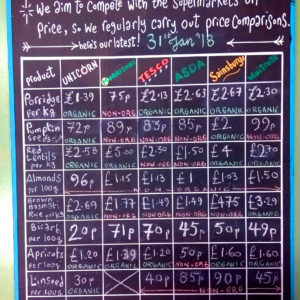 we aim to compete with the supermarkets on
Price, so we regularly carry out price comparisons.
here's our latest! 31st Jan '18
product UNICORN TESCO ASDA Sainsburys waitrose
Porridge per kg £1.39 75p £2.13 £2.63 £2.67 £2.30
ORGANIC NON-ORG ORGANIC ORGANIC ORGANIC ORGANIC
Pumpkin seeds 72p 89p 85p 85p £2 99p
ORGANIC NON-ORG NON-ORG NON-ORG ORGANIC NON-ORG
Red Lentils per kg £2.58 £1.50 £4 £2.70
ORGANIC NON-ORG NON-ORG ORGANIC
Almonds per 100g 96p £1.15 £1.13 £1 £1.03 £1.50
Brown Basmati Rice per kg £2.69 £1.77 £1.49 £1.49 £4.75 £3.29
ORGANIC NON-ORG NON-ORG NON-ORG ORGANIC ORGANIC
Bicarb per 100g 20p 71p 70p 45p 50p 49p
Apricots per 100g £1.20 £1.39 £1.20 50p £1.60 £1.60
ORGANIC ORGANIC ORGANIC NON-ORG ORGANIC ORGANIC
Linseed per 100g 30p 40p 85p 90p 45p
ORGANIC